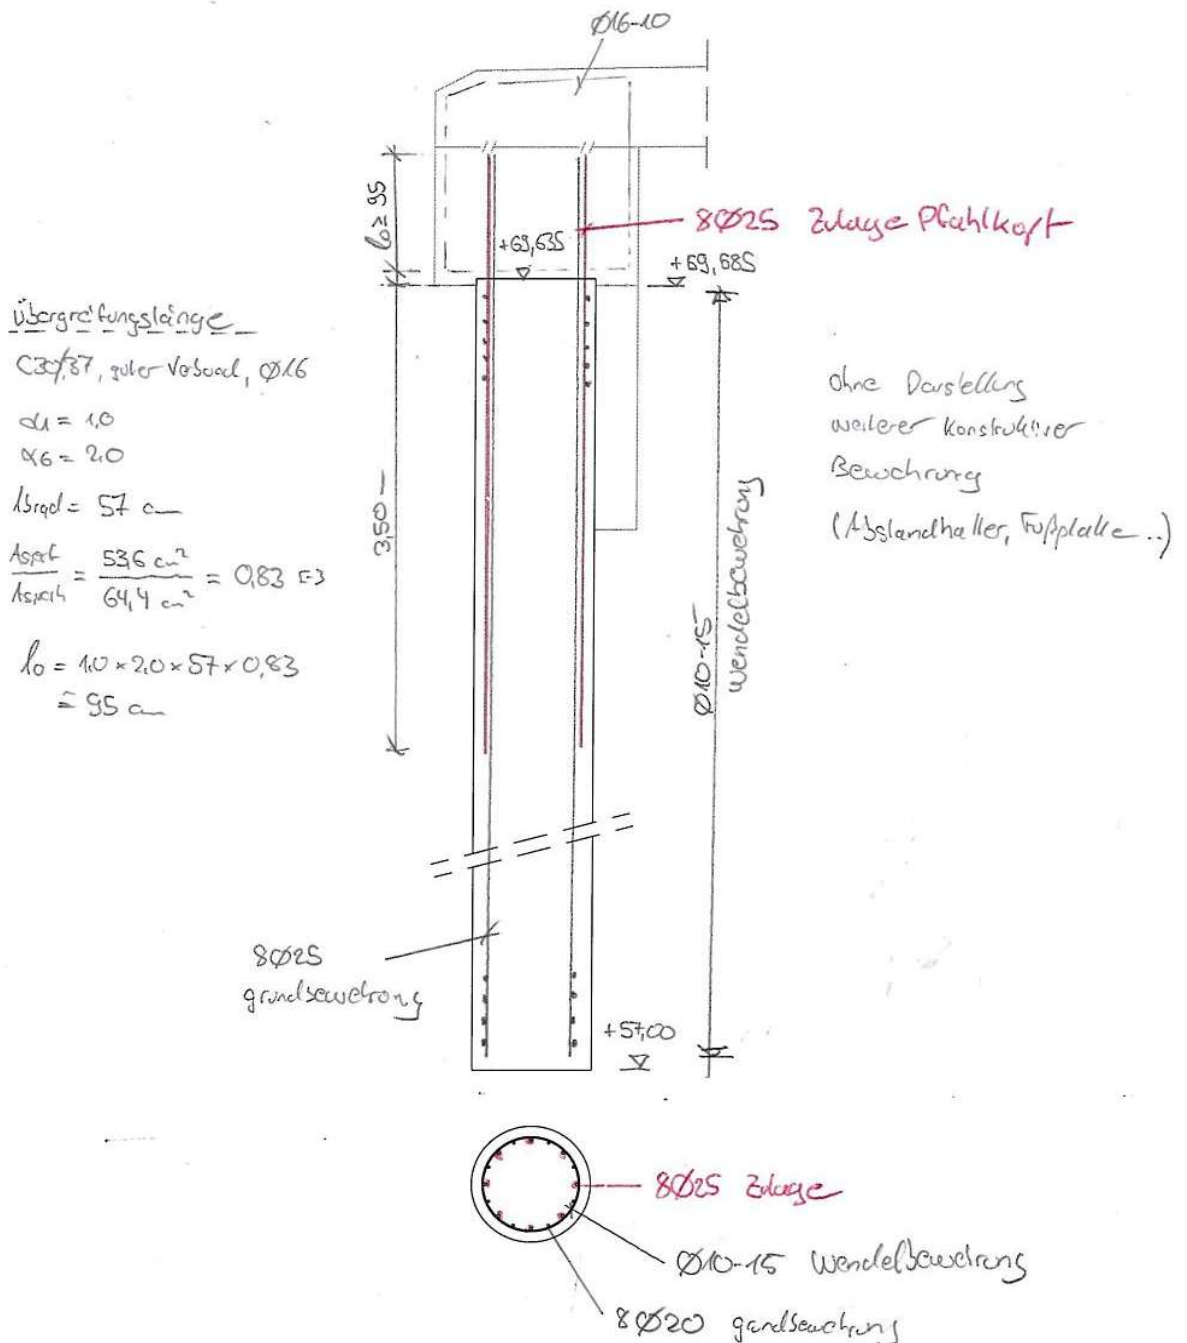 Ø16-10
l₀ ≥ 95
8Ø25 Zulage Pfahlkopf
+69,635
+69,685
Übergreifungslänge
C30/37, guter Verbund, Ø16
α1 = 1,0
α6 = 2,0
lbrqd = 57 cm
As,erf / As,vorh = 53,6 cm² / 64,4 cm² = 0,83 [-]
l₀ = 1,0 × 2,0 × 57 × 0,83
≙ 95 cm
3,50
ohne Darstellung
weiterer konstruktiver
Bewehrung
(Abstandhalter, Fußplatte..)
Ø10-15
Wendelbewehrung
8Ø25
grundbewehrung
+57,00
8Ø25 Zulage
Ø10-15 Wendelbewehrung
8Ø20 grundbewehrung